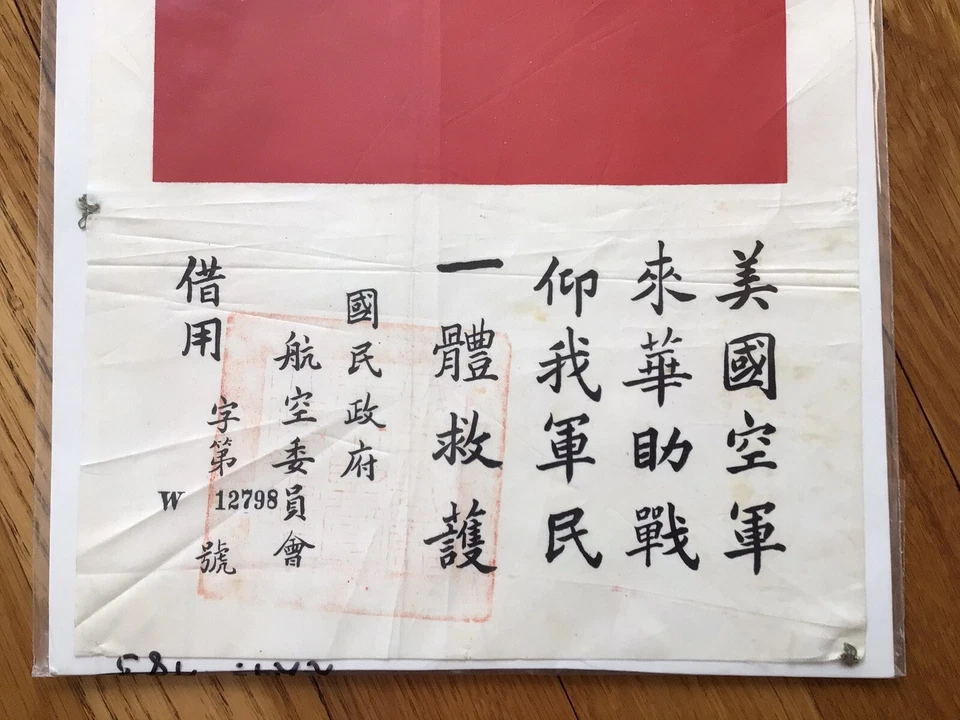 美國空軍
來華助戰
仰我軍民
一體救護
國民政府
航空委員會
借用
字第
W 12798
號